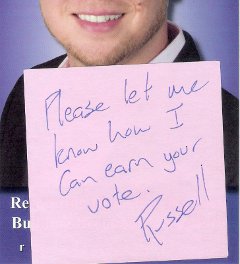 Please let me
know how I
can earn your
vote.
Russell
Re
Bu
r